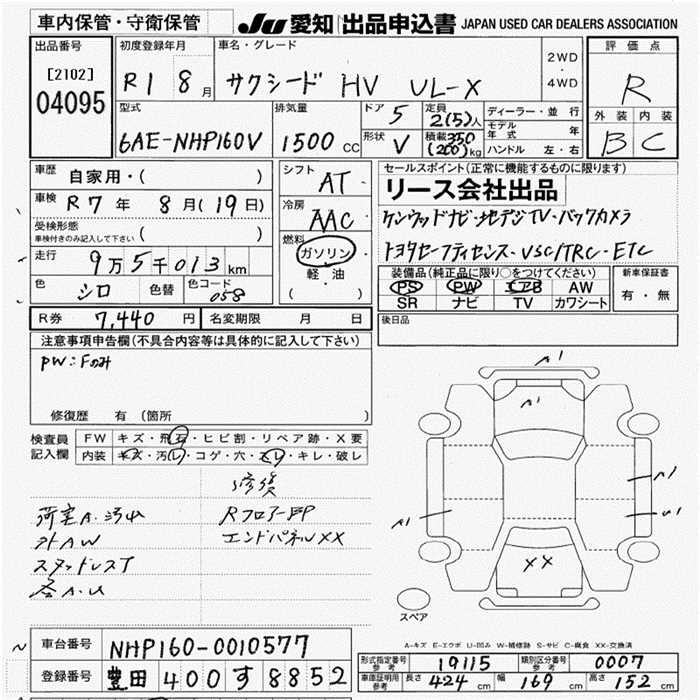 車内保管・守衛保管 JU 愛知 出品申込書 JAPAN USED CAR DEALERS ASSOCIATION
出品番号 初度登録年月 車名・グレード 評価点
[2102] R1 8 月 サクシード HV UL-X 2WD ・ 4WD R
04095 型式 排気量 ドア 5 定員 2(5)人 ディーラー・並行 外装 内装
6AE-NHP160V 1500 CC 形状 V 積載 350 (200) kg モデル年式 年 B C
ハンドル 左・右
車歴 自家用・( ) シフト AT セールスポイント(正常に機能するものに限ります)
車検 R7 年 8 月 (19 日) 冷房 AAC リース会社出品
受検形態 車検付きのみ記入して下さい ( ) 燃料 ガソリン ケンウッドナビ・地デジTV・バックカメラ
走行 9万5千013 km 軽・油 トヨタセーフティセンス・VSC/TRC・ETC
色 シロ 色替 色コード 058 ( ) 装備品(純正品に限り○をつけてください) 新車保証書
PS PW エアB AW 有・無
SR ナビ TV カワシート
R券 7,440 円 名変期限 月 日 後日品
注意事項申告欄(不具合内容等は具体的に記入して下さい)
PW:Fのみ
修復歴 有 (箇所 )
検査員 FW キズ・飛石・ヒビ割・リペア跡・X要
記入欄 内装 キズ・汚れ・コゲ・穴・スレ・キレ・破レ
修復
荷室A.汚れ RフロアーFP
外AW エンドパネルXX
スタッドレスT
各A.U
A1
A1
A1
A1
U1
XX
スペア
A-キズ E-エクボ U-凹み W-補修跡 S-サビ C-腐食 XX-交換済
車台番号 NHP160-0010577 形式指定番号 参考 19115 類別区分番号 参考 0007
登録番号 豊田 400 す 8852 車庫証明用 参考 長さ 424 cm 幅 169 cm 高さ 152 cm